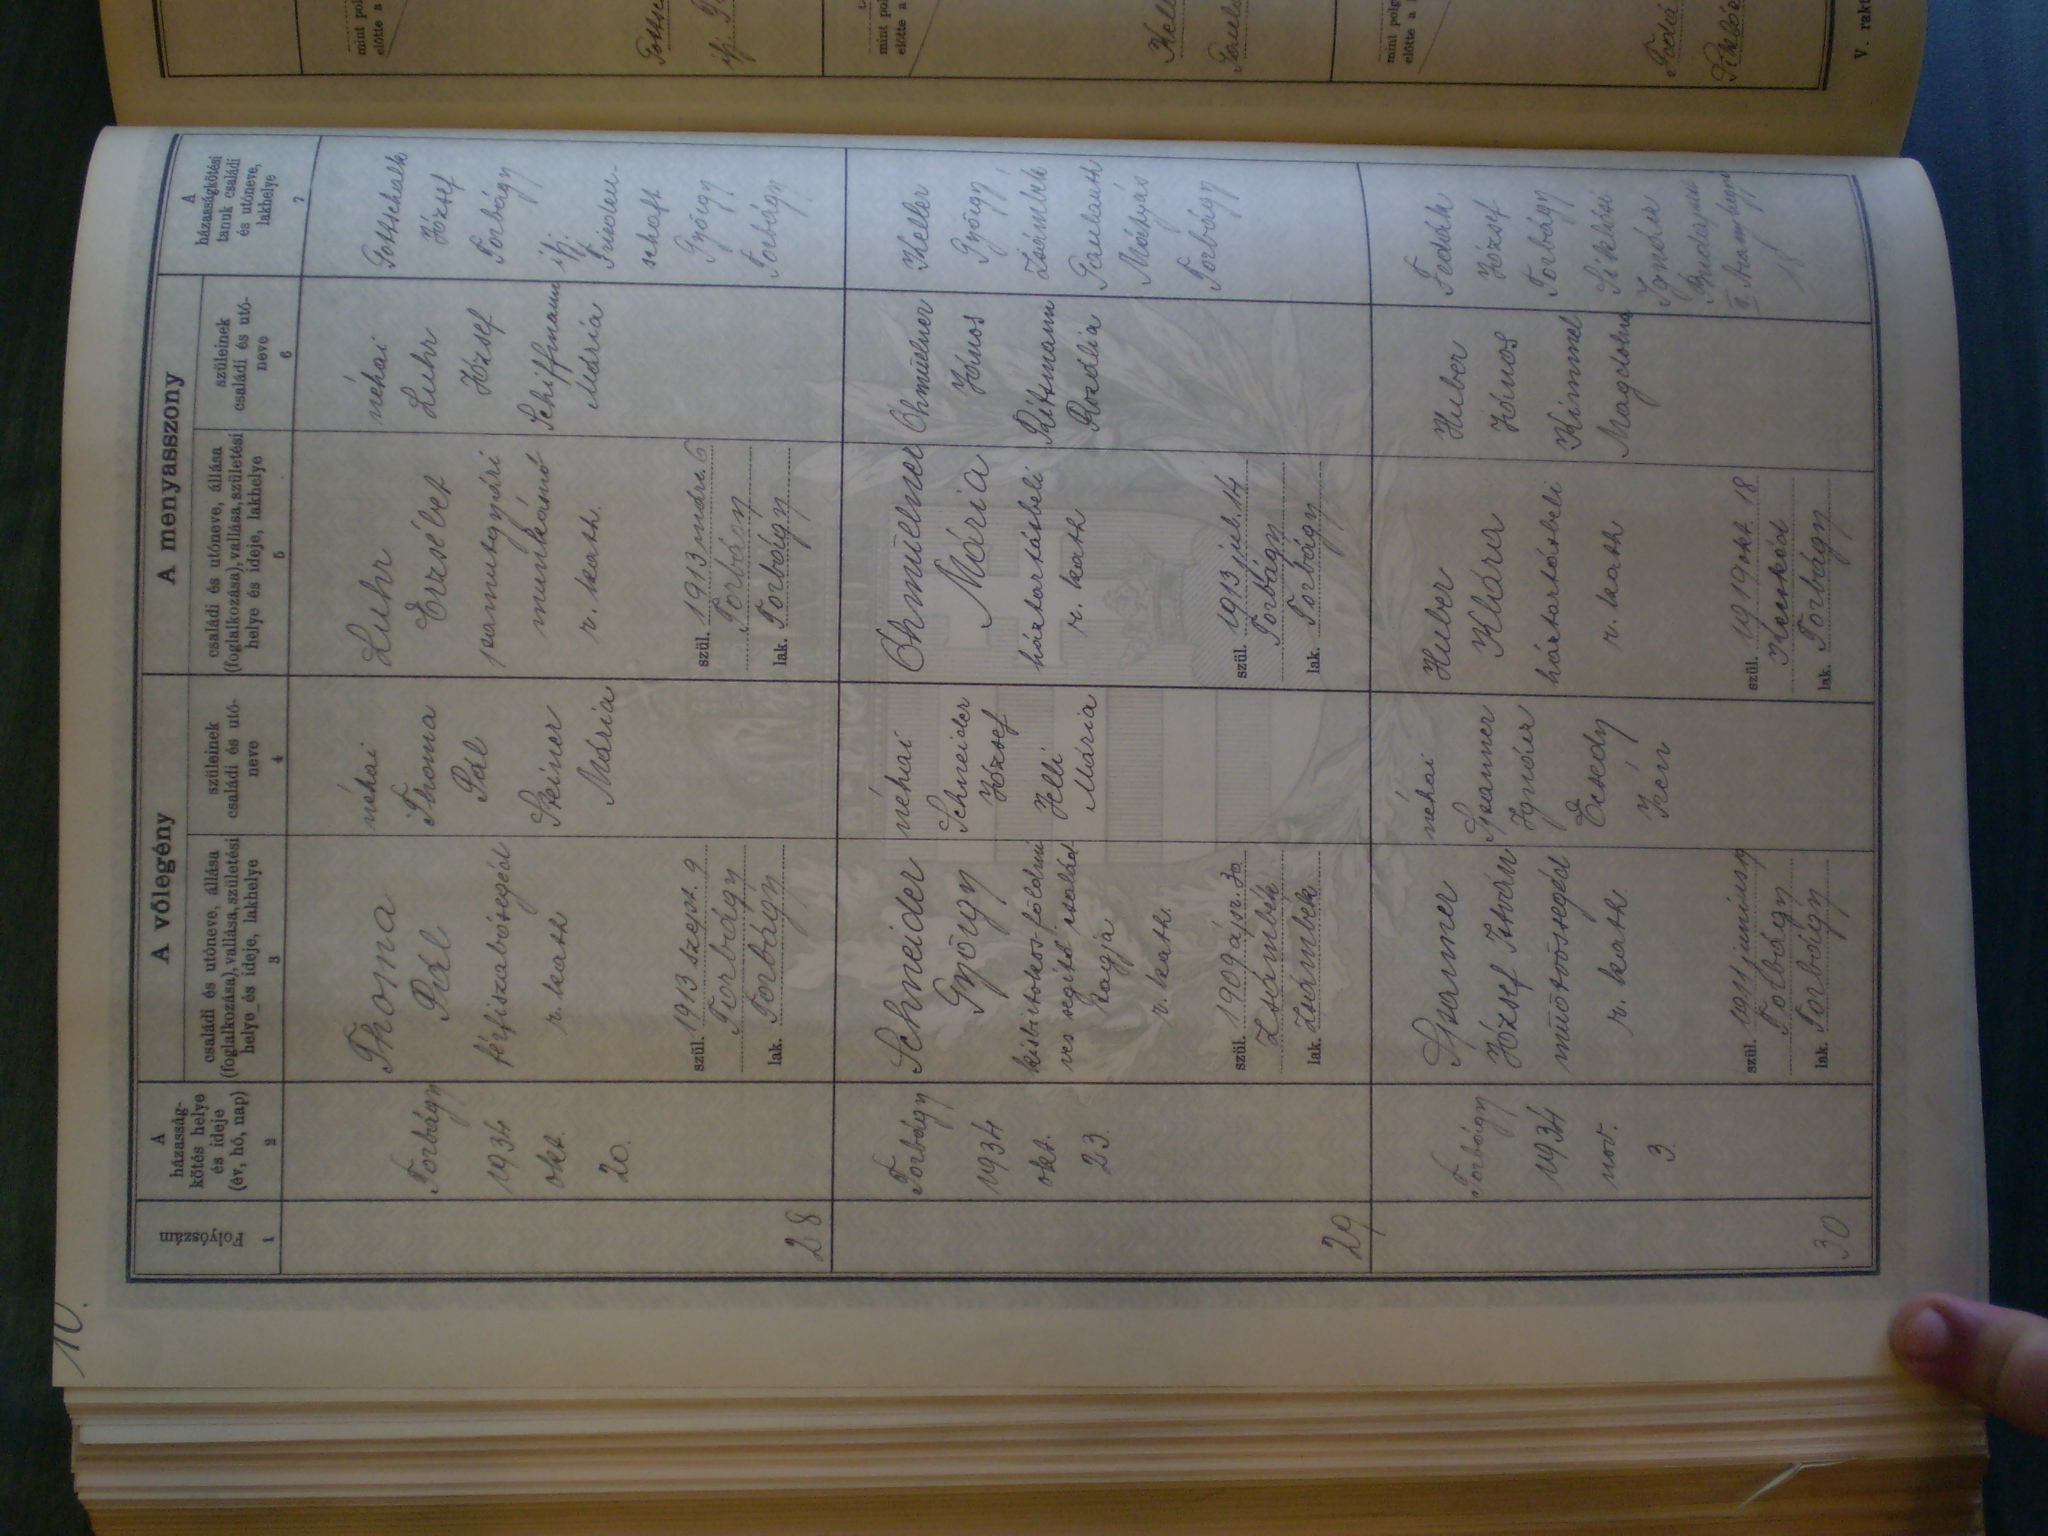 10.
A vőlegény
A menyasszony
Folyószám
1
A
házasság-
kötés helye
és ideje
(év, hó, nap)
2
családi és utóneve, állása
(foglalkozása), vallása, születési
helye és ideje, lakhelye
3
szüleinek
családi és utó-
neve
4
családi és utóneve, állása
(foglalkozása), vallása, születési
helye és ideje, lakhelye
5
szüleinek
családi és utó-
neve
6
A
házasságkötési
tanuk családi
és utóneve,
lakhelye
7
28
Torbágy
1934
okt.
20.
Thoma
Pál
férfiszabósegéd
r. kath
szül. 1913 szept. 9
Torbágy
lak. Torbágy
néhai
Thoma
Pál
Steiner
Mária
Luhr
Erzsébet
pamutgyári
munkásnő
r. kath.
szül. 1913 márc. 6
Torbágy
lak. Torbágy
néhai
Luhr
József
Schiffmann
Mária
Gottschalk
József
Torbágy
ifj.
Frieden-
schaft
György
Torbágy
29
Torbágy
1934
okt.
23.
Schneider
György
kisbirtokos-földmí
ves segítő család
tagja
r. kath.
szül. 1909 ápr. 30
Zsámbék
lak. Zsámbék
néhai
Schneider
József
Helli
Mária
Ohmüllner
Mária
háztartásbeli
r. kath
szül. 1913 jul. 14
Torbágy
lak. Torbágy
Ohmüllner
János
Rittmann
Rozália
Keller
György
Zsámbék
Mátyás
Torbágy
30
Torbágy
1934
nov.
3.
Spanner
József István
műötvössegéd
r. kath.
szül. 1911 junius
Torbágy
lak. Torbágy
néhai
Spanner
Ignácz
Ecsedy
Teréz
Huber
Klára
háztartásbeli
r. kath
szül. 1919 okt. 18
lak. Torbágy
Huber
János
Kimmel
Magdolna
Fedák
József
Torbágy
Siklósi
Sándor
Budapest
18
V. rakt